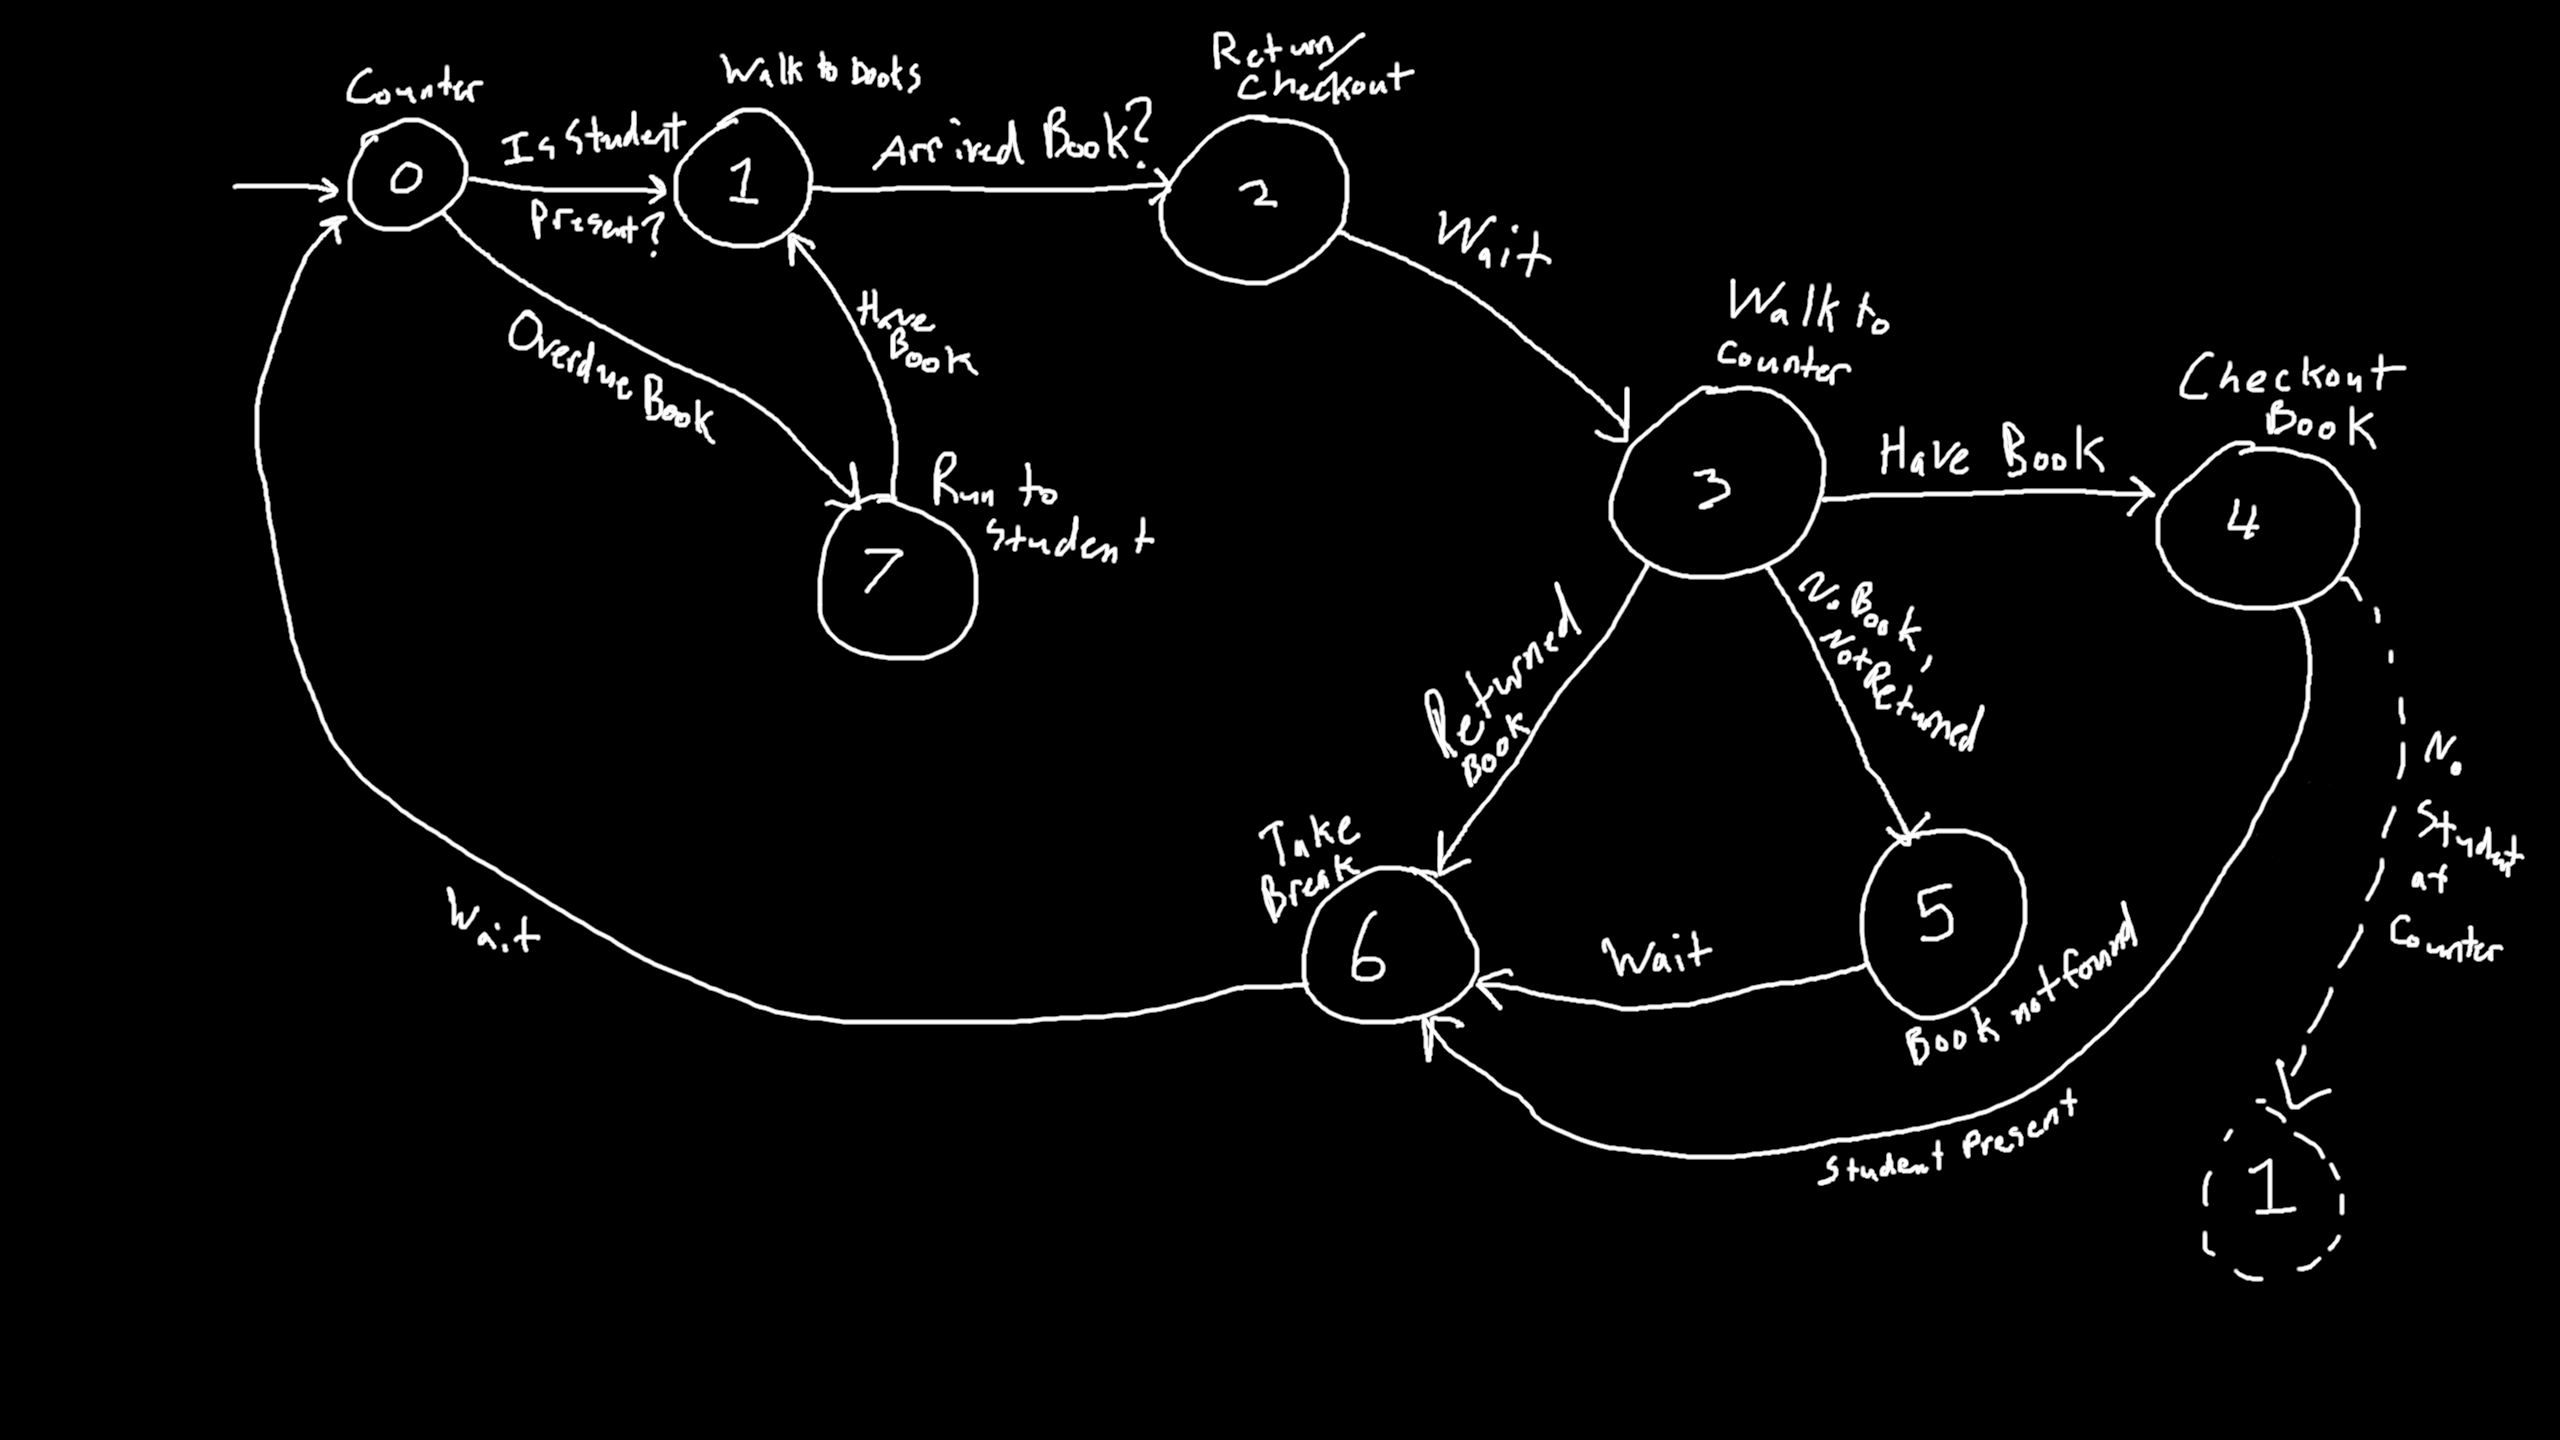 Counter
0
Is Student
Present?
Walk to books
1
Arrived Book?
Return/
Checkout
2
Wait
Overdue Book
Have
Book
Run to
Student
7
Walk to
Counter
3
Have Book
Checkout
Book
4
Returned
Book
No Book,
Not Returned
Take
Break
6
Wait
5
Book not found
Wait
Student Present
No
Student
at
Counter
1